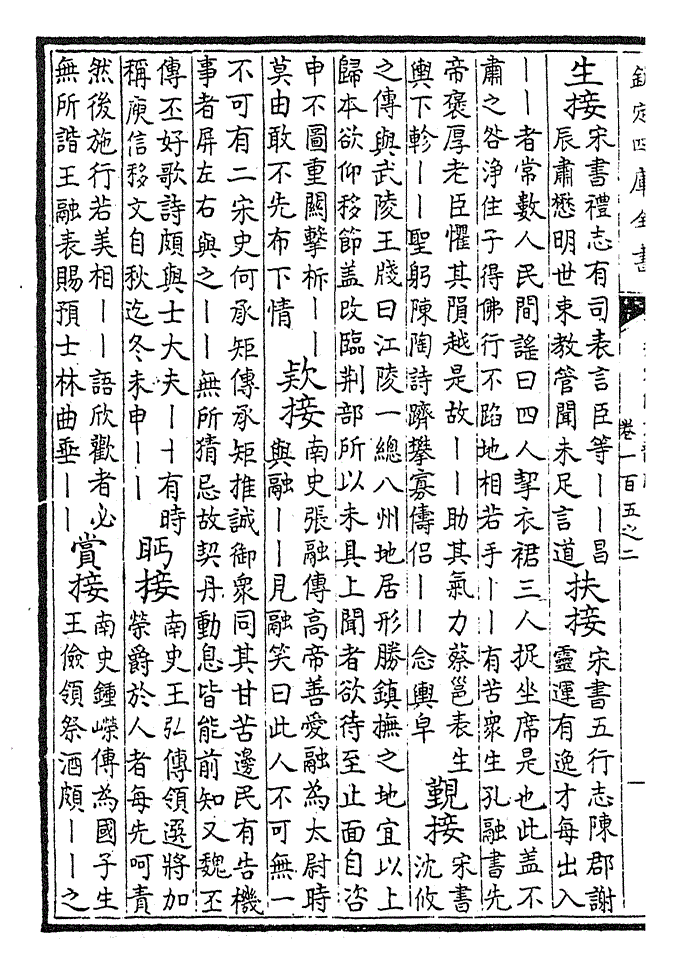 欽定四庫全書
卷一百五之二
生接
宋書禮志有司表言臣等丨丨昌
辰肅懋明世束教管聞未足言道
扶接
宋書五行志陳郡謝
靈運有逸才每出入
丨丨者常數人民間謠曰四人挈衣裙三人捉坐席是也此盖不
肅之咎浄住子得佛行不蹈地相若手丨丨有苦衆生孔融書先
帝褒厚老臣懼其隕越是故丨丨助其氣力蔡邕表生
輿下軫丨丨聖躬陳陶詩躋攀寡儔侣丨丨念輿皁
覲接
宋書
沈攸
之傳與武陵王牋曰江陵一總八州地居形勝鎮撫之地宜以上
歸本欲仰移節盖改臨荆部所以未具上聞者欲待至止面自咨
申不圖重闗擊柝丨丨
莫由敢不先布下情
欵接
南史張融傳高帝善愛融為太尉時
與融丨丨見融笑曰此人不可無一
不可有二宋史何承矩傳承矩推誠御衆同其甘苦邊民有告機
事者屏左右與之丨丨無所猜忌故契丹動息皆能前知又魏丕
傳丕好歌詩頗與士大夫丨丨有時
稱庾信移文自秋迄冬未申丨丨
眄接
南史王弘傳領選將加
榮爵於人者每先呵責
然後施行若美相丨丨語欣歡者必
無所諧王融表賜預士林曲垂丨丨
賞接
南史鍾嶸傳為國子生
王儉領祭酒頗丨丨之